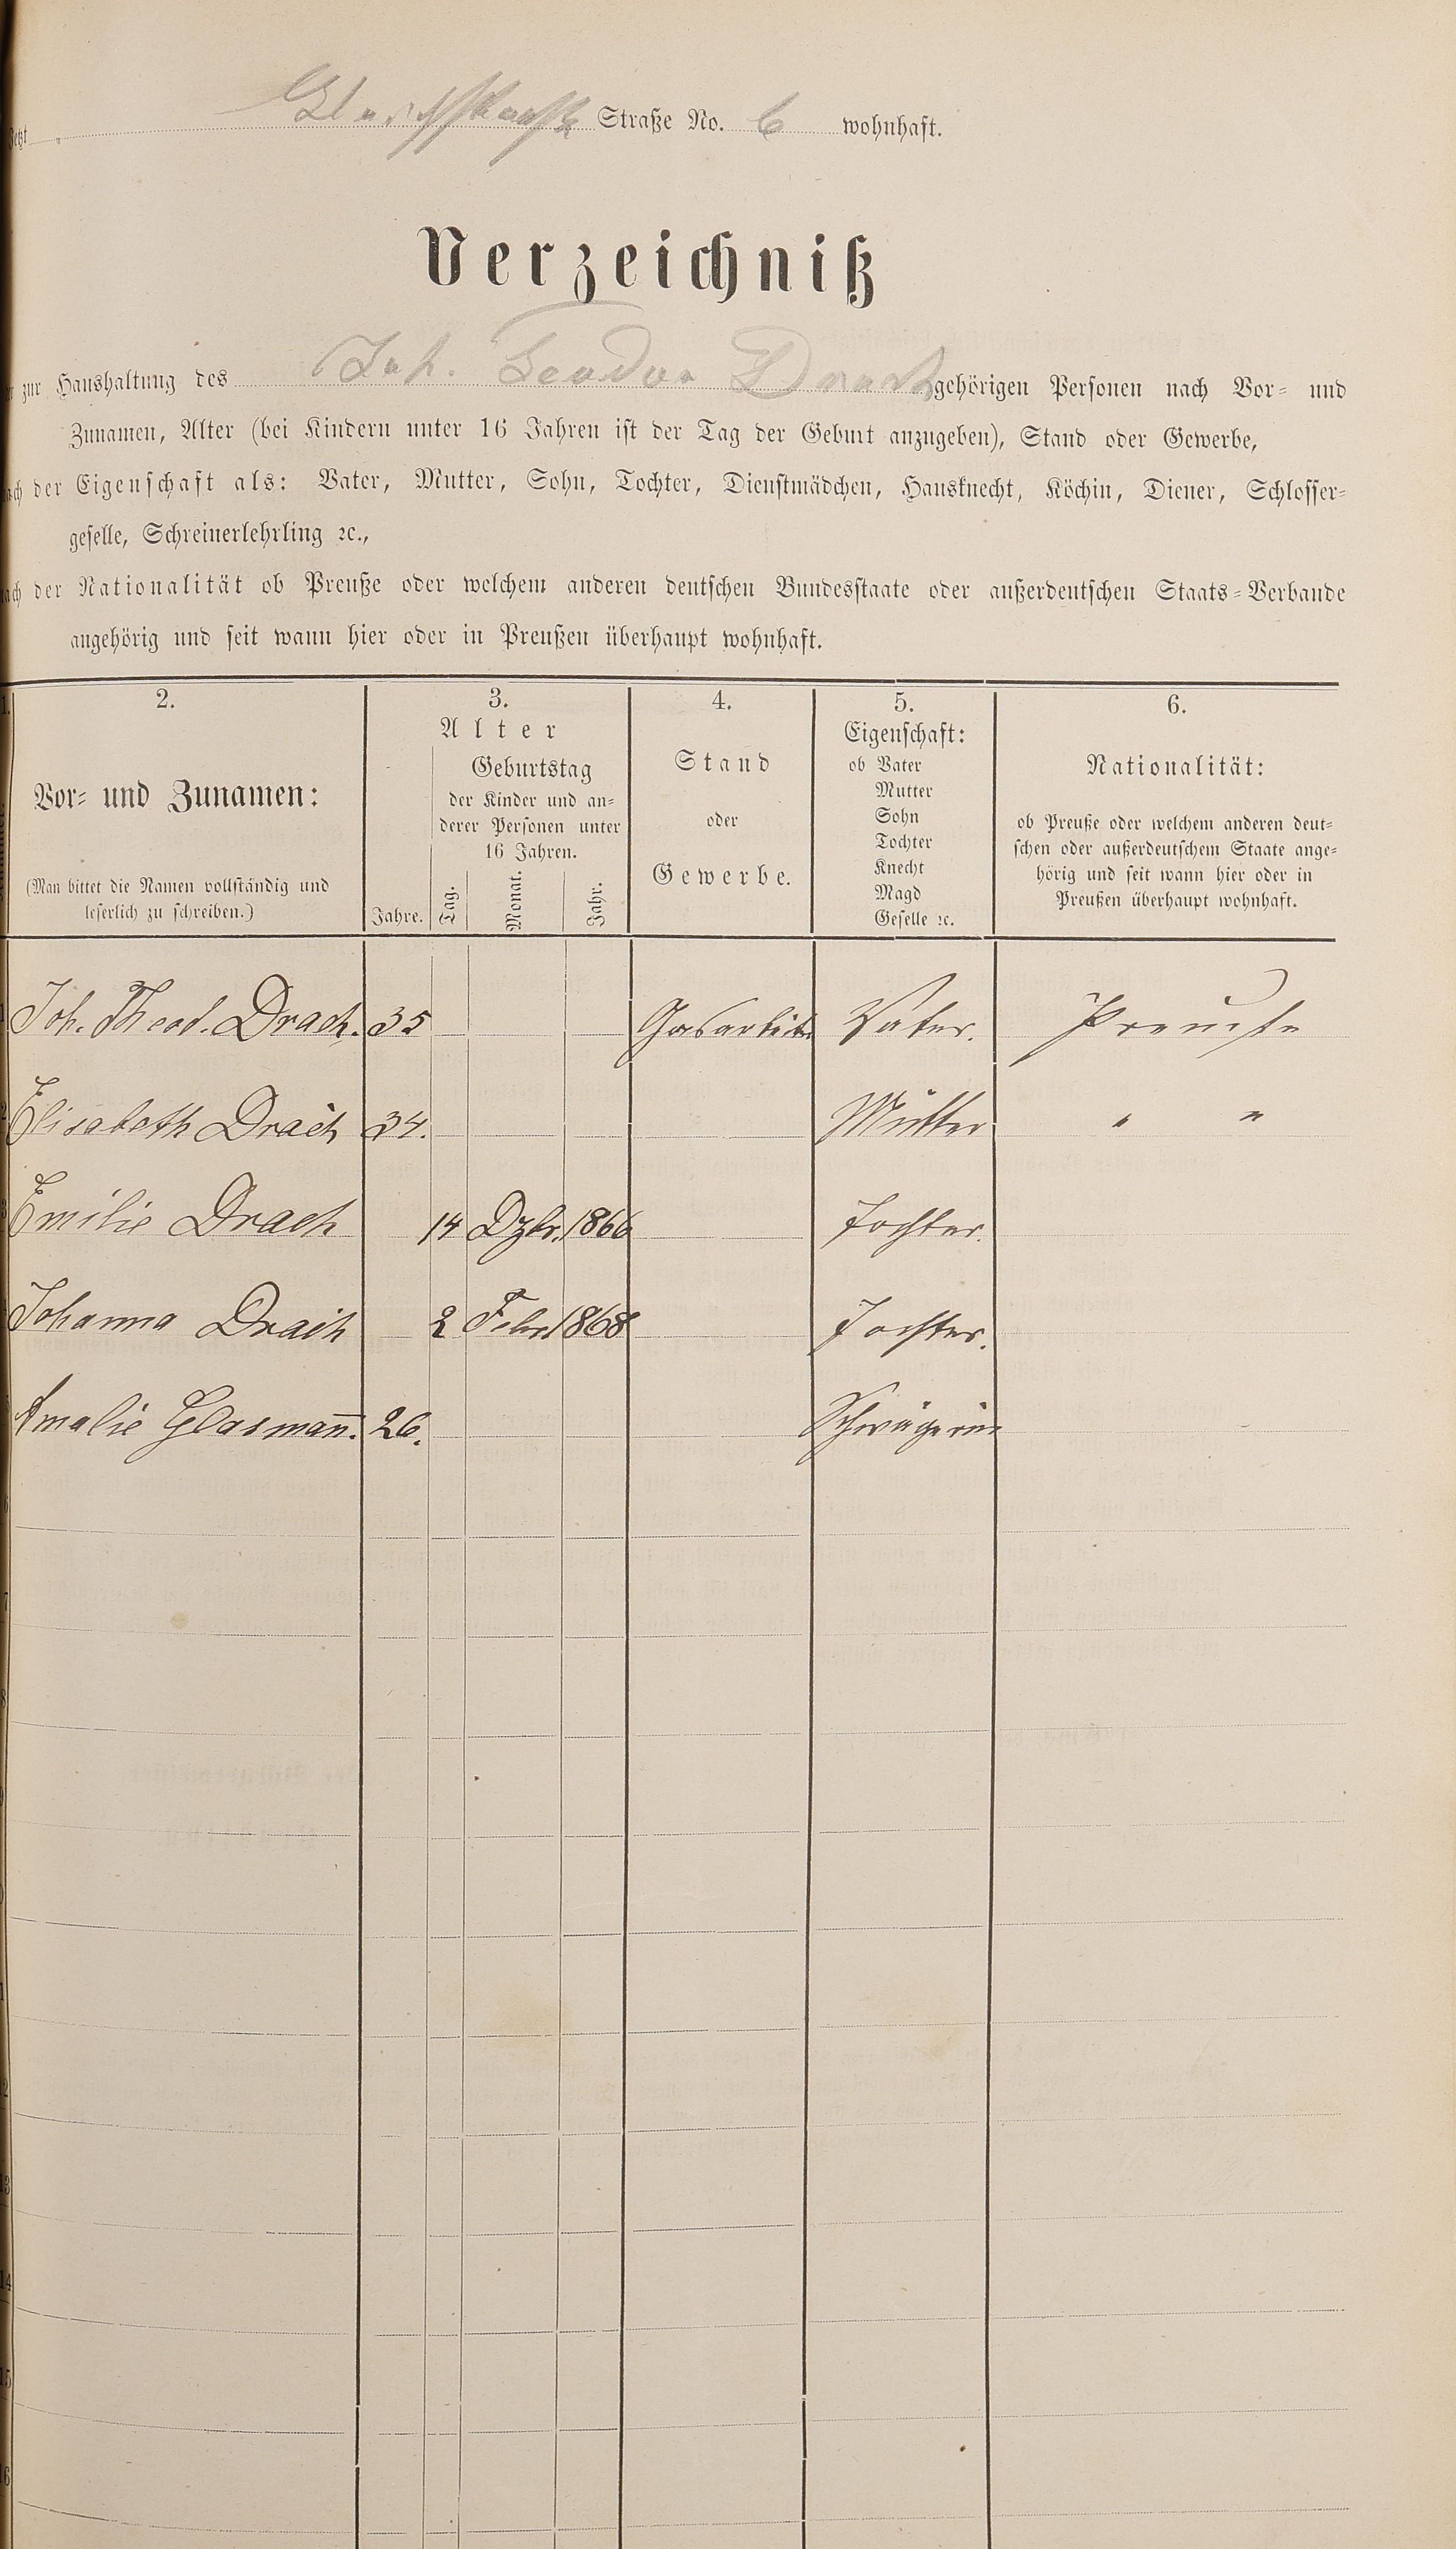 Jetzt Straße No. 6 wohnhaft.
Verzeichniß
zur Haushaltung des Joh. Teodor Drach gehörigen Personen nach Vor- und
Zunamen, Alter (bei Kindern unter 16 Jahren ist der Tag der Geburt anzugeben), Stand oder Gewerbe,
nach der Eigenschaft als: Vater, Mutter, Sohn, Tochter, Dienstmädchen, Hausknecht, Köchin, Diener, Schlosser-
geselle, Schreinerlehrling ꝛc.,
nach der Nationalität ob Preuße oder welchem anderen deutschen Bundesstaate oder außerdeutschen Staats-Verbande
angehörig und seit wann hier oder in Preußen überhaupt wohnhaft.
1.
2.
Vor- und Zunamen:
(Man bittet die Namen vollständig und
leserlich zu schreiben.)
3.
Alter
Jahre.
Geburtstag
der Kinder und an-
derer Personen unter
16 Jahren.
Tag.
Monat.
Jahr.
4.
Stand
oder
Gewerbe.
5.
Eigenschaft:
ob Vater
Mutter
Sohn
Tochter
Knecht
Magd
Geselle ꝛc.
6.
Nationalität:
ob Preuße oder welchem anderen deut-
schen oder außerdeutschem Staate ange-
hörig und seit wann hier oder in
Preußen überhaupt wohnhaft.
1 Joh. Theod. Drach. 35 Gasarbeiter Vater. Preuße
2 Elisabeth Drach 34. Mutter " "
3 Emilie Drach 14 Dzbr. 1866 Tochter.
Johanna Drach 2 Febr 1868 Tochter.
Amalie Glasmann. 26. Schwägerin
6
7
8
9
12
13
14
15
16